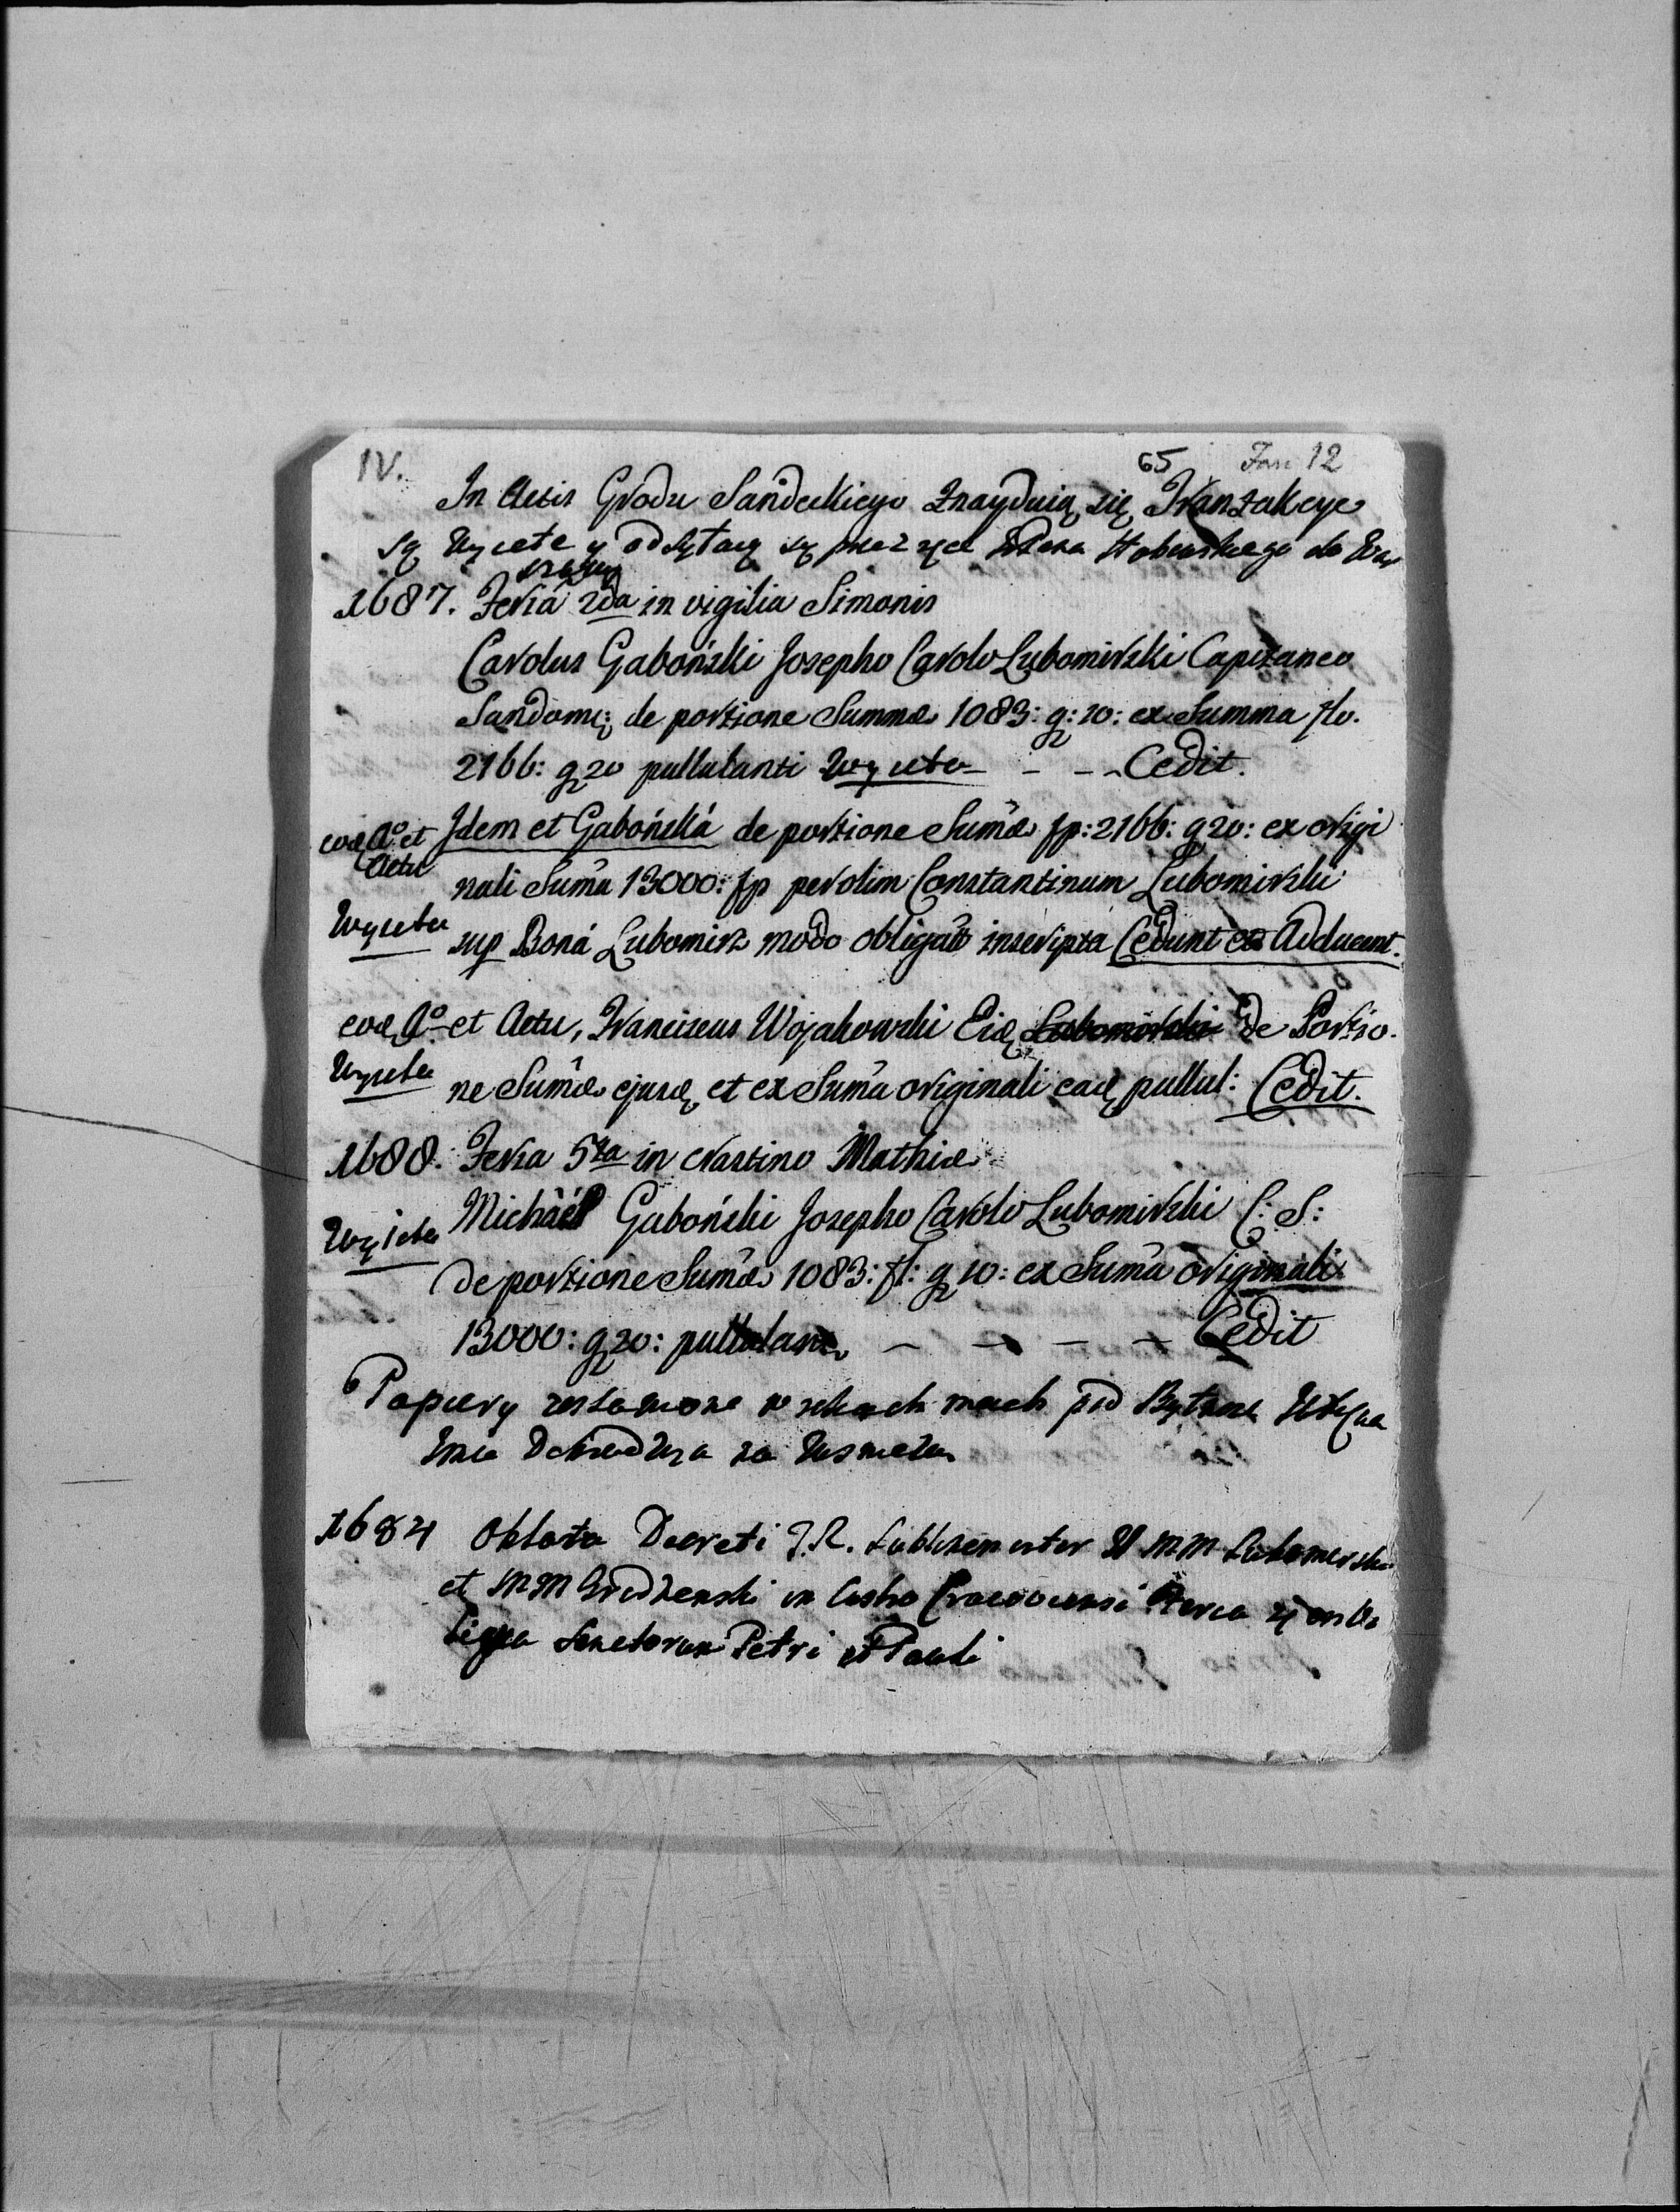 IV. 65 Fasc 12
In Actis Grodu Sandeckiego Znayduią się Tranzakcye
są Wyięte y odsyłaią są przez
1687. Feria 2da in vigilia Simonis
Carolus Gaboński Josepho Carolo Lubomirski Capitaneo
Sandomi: de portione Summæ 1083: g: 10: ex Summa flo.
2166: g 20 pullulanti Wyięta - - - Cedit.
eoq Ao et Idem et Gabońská de portione Sumæ fp: 2166: g 20: ex origi
Actu nali Suma 13000: fp per olim Constantinum Lubomirski
Wyięta sup Boná Lubomirz modo obligato inscripta Cedunt et Adducent.
eoq Ao et Actu, Franciscus Wojakowski Eiq Lubomirski de Portio-
Wyięta ne Sumæ ejusq et ex Suma originali eaq pullul: Cedit.
1688. Feria 5ta in crastino Mathiæ
Michaël Gaboński Josepho Carolo Lubomirski C: S:
Wyięta de portione Sumæ 1083: fl: g 10: ex Suma originali
13000: g 20: pullulan - - - - Cedit
Papiery zostawione w rękach moich pod Bytność
Dobrodzieja
1684 Oblata Decreti T. R. Lublinen inter MM Lubomirski
et MM in Castro Cracoviensi Feria
Sanctorum Petri et Pauli